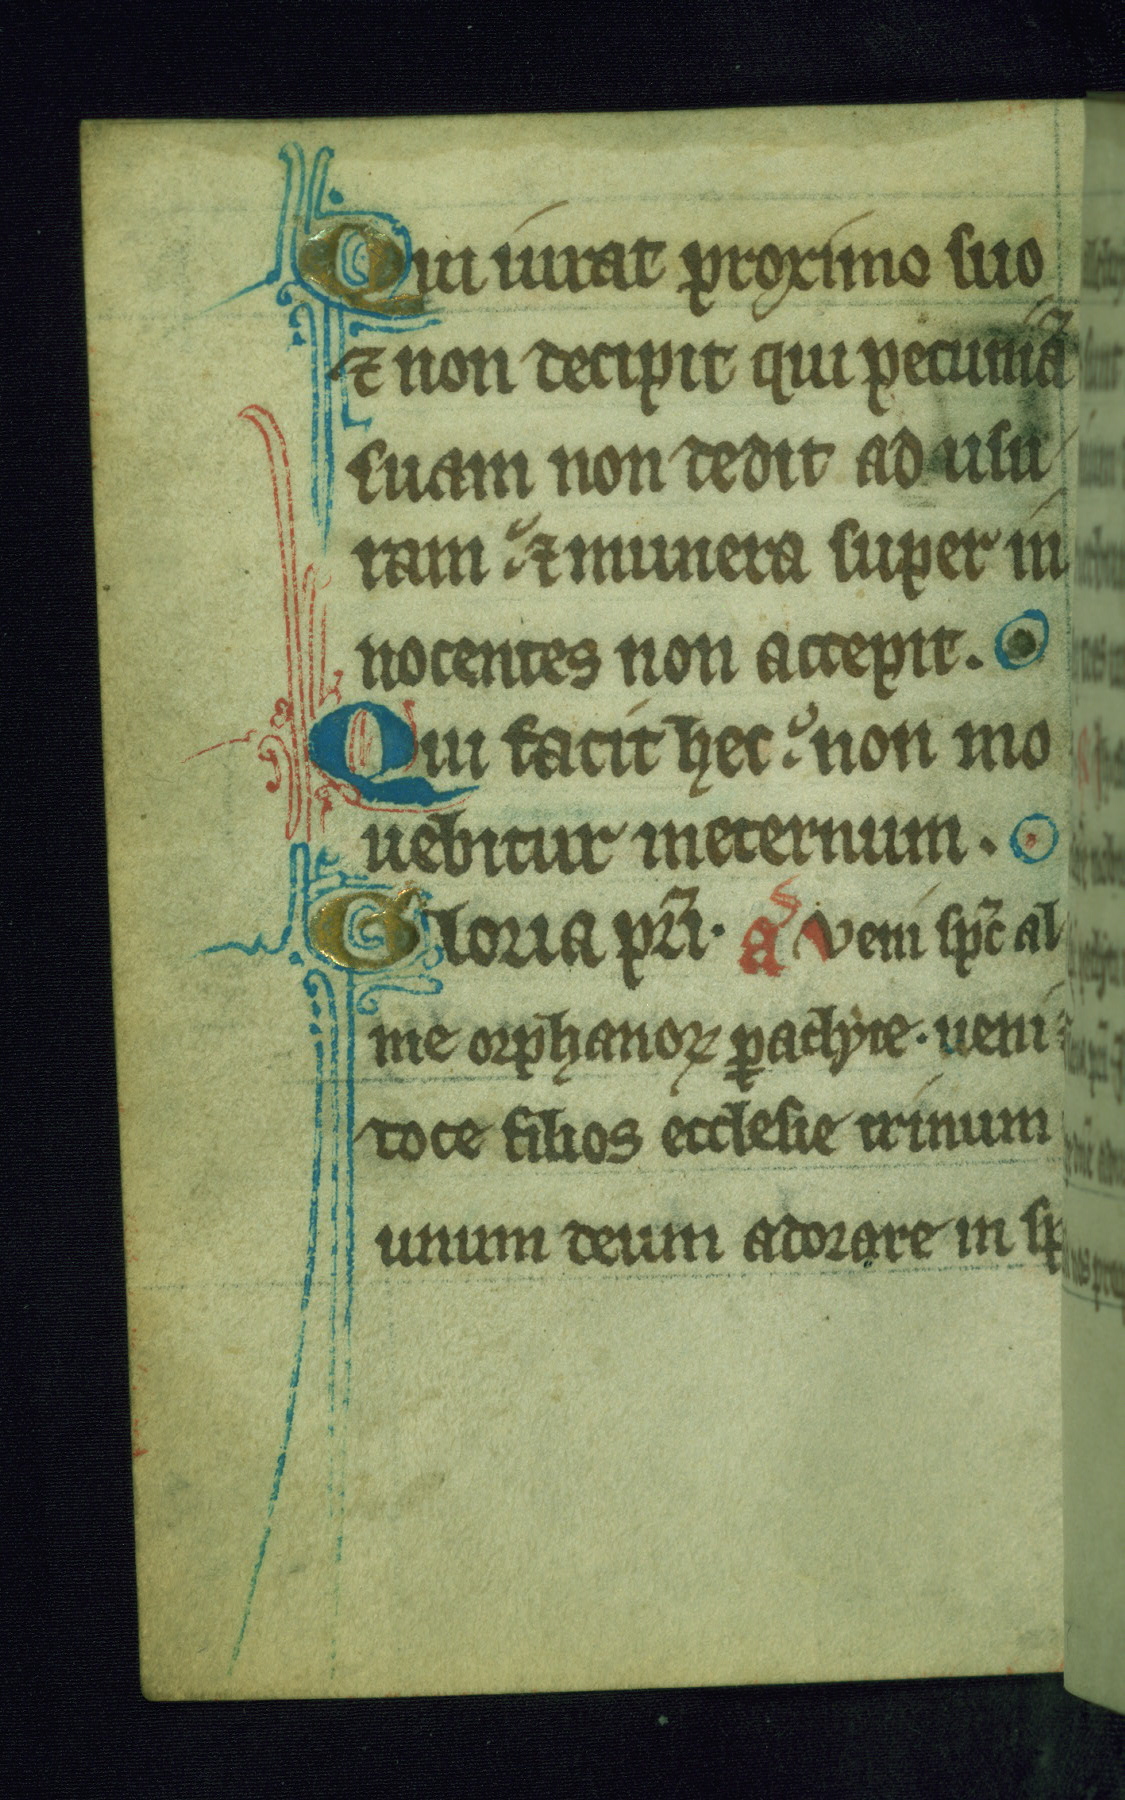 Qui iurat proximo suo
⁊ non decipit qui pecuniā
suam non dedit ad usu
ram ⁊ munera super in
nocentes non accepit.
Qui facit hec: non mo
uebitur ineternum.
Gloria pr̄i. a Veni sp̄c al
me orphanoꝝ ꝑaclyte. ueni
doce filios ecclesie trinum
unum deum adorare in sp